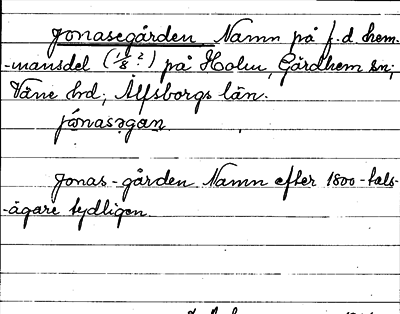 Jonasegården Namn på f.d. hem-
-mansdel (1/8 ?) på Holm, Gärdhem sn;
Väne hd; Älfsborgs län.
jónasəgan.
Jonas-gården Namn efter 1800-tals-
-ägare tydligen.